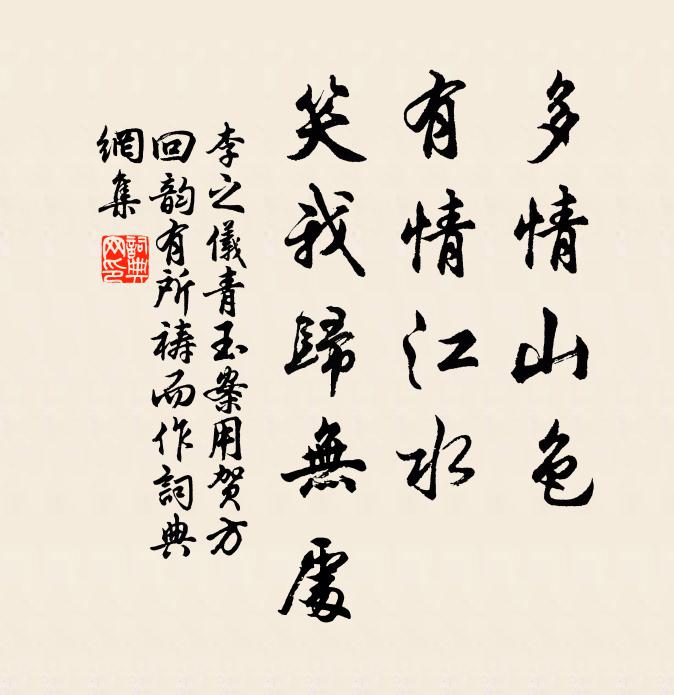 多情山色
有情江水
笑我歸無處
李之儀青玉案用贺方
回韵有所祷而作詞典
網集
詞典網印